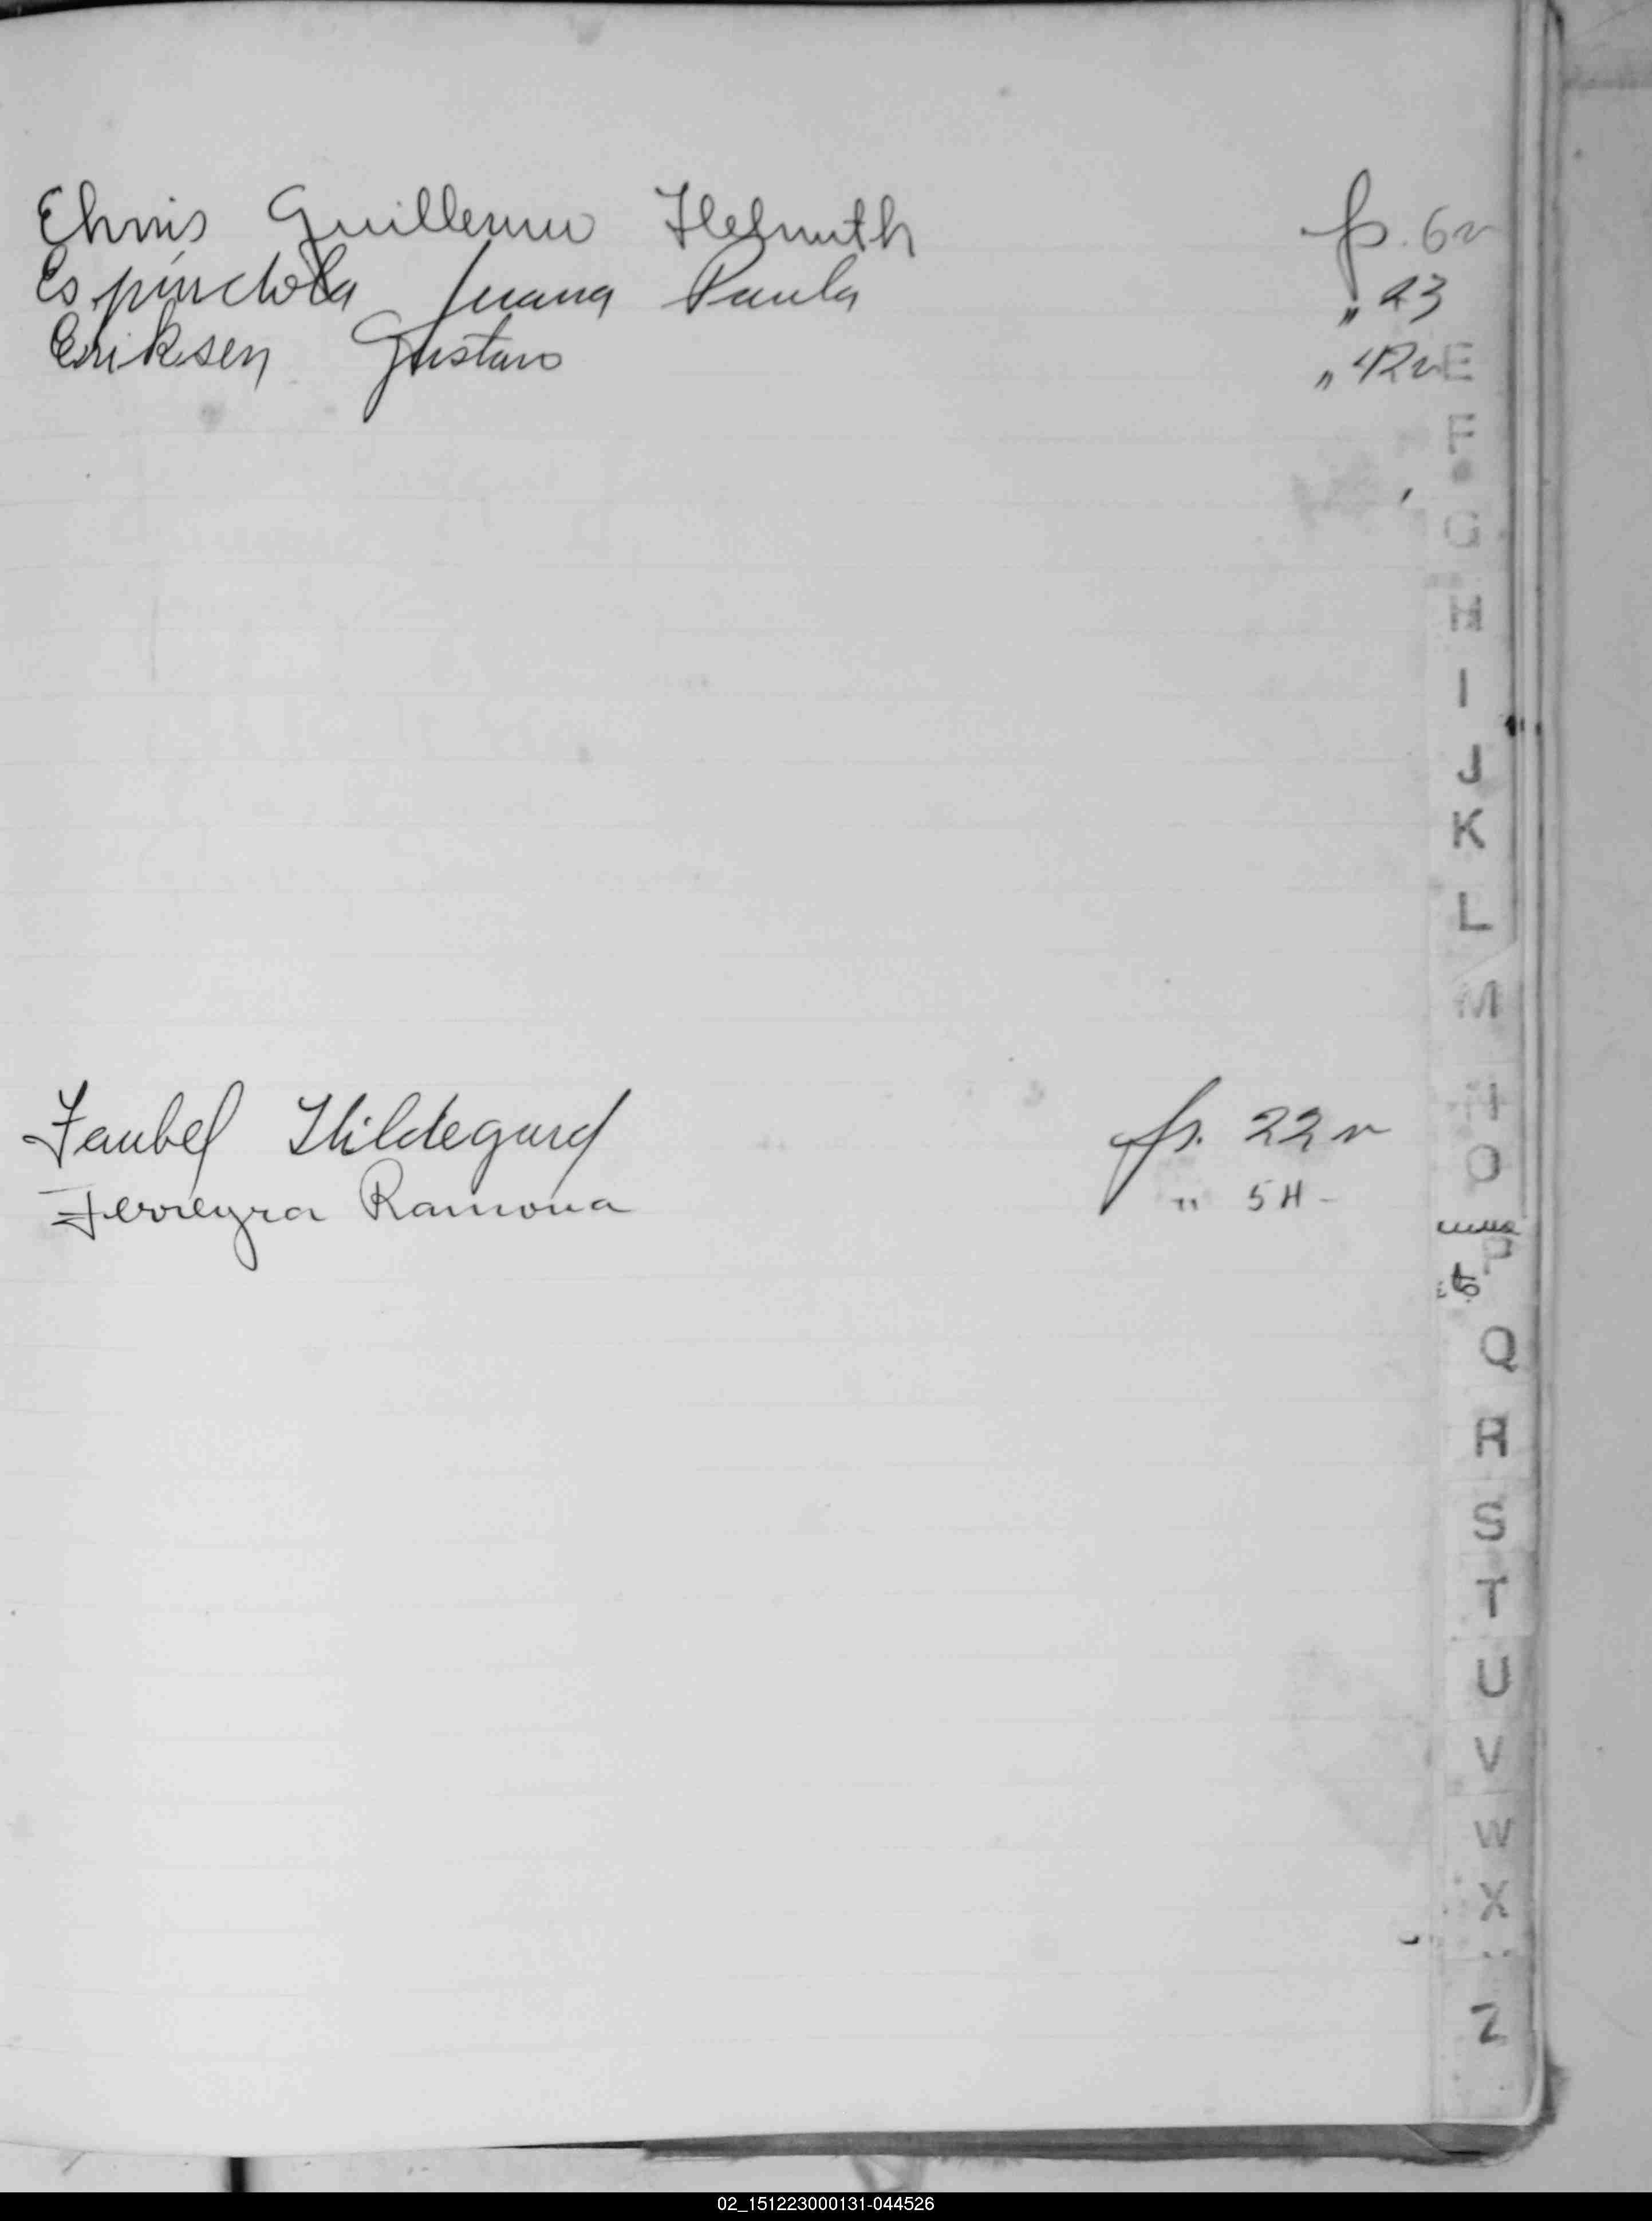 Ehnis Guillermo Helmuth fs. 6v
Espindola Juana Paula " 23
Eriksen Gustavo " 42v
E
F
G
H
I
J
K
L
M
Faubel Hildegard fs. 22v
Ferreyra Ramona " 54-
N
O
P
Q
R
S
T
U
V
W
X
Z
02_151223000131-044526